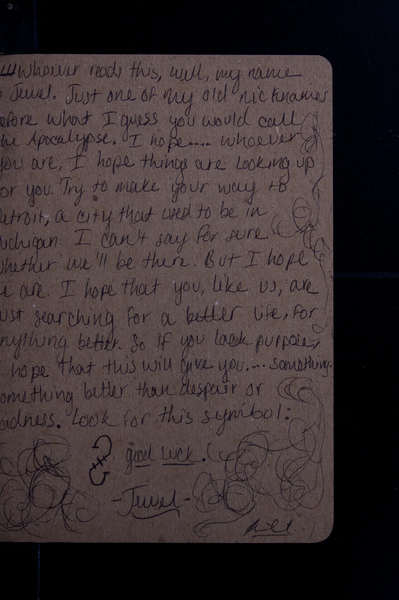 Whoever reads this, well, my name
Jewel. Just one of my old nicknames
efore what I guess you would call
the Apocalypse. I hope.... whoever
you are, I hope things are looking up
or you. Try to make your way to
etroit, a city that used to be in
ichigan. I can't say for sure
whether we'll be there. But I hope
e are. I hope that you, like us, are
ust searching for a better life, for
nything better. So if you lack purpose,
hope that this will give you.... something.
omething better than despair or
adness. Look for this symbol:
good luck.
-Jewel-